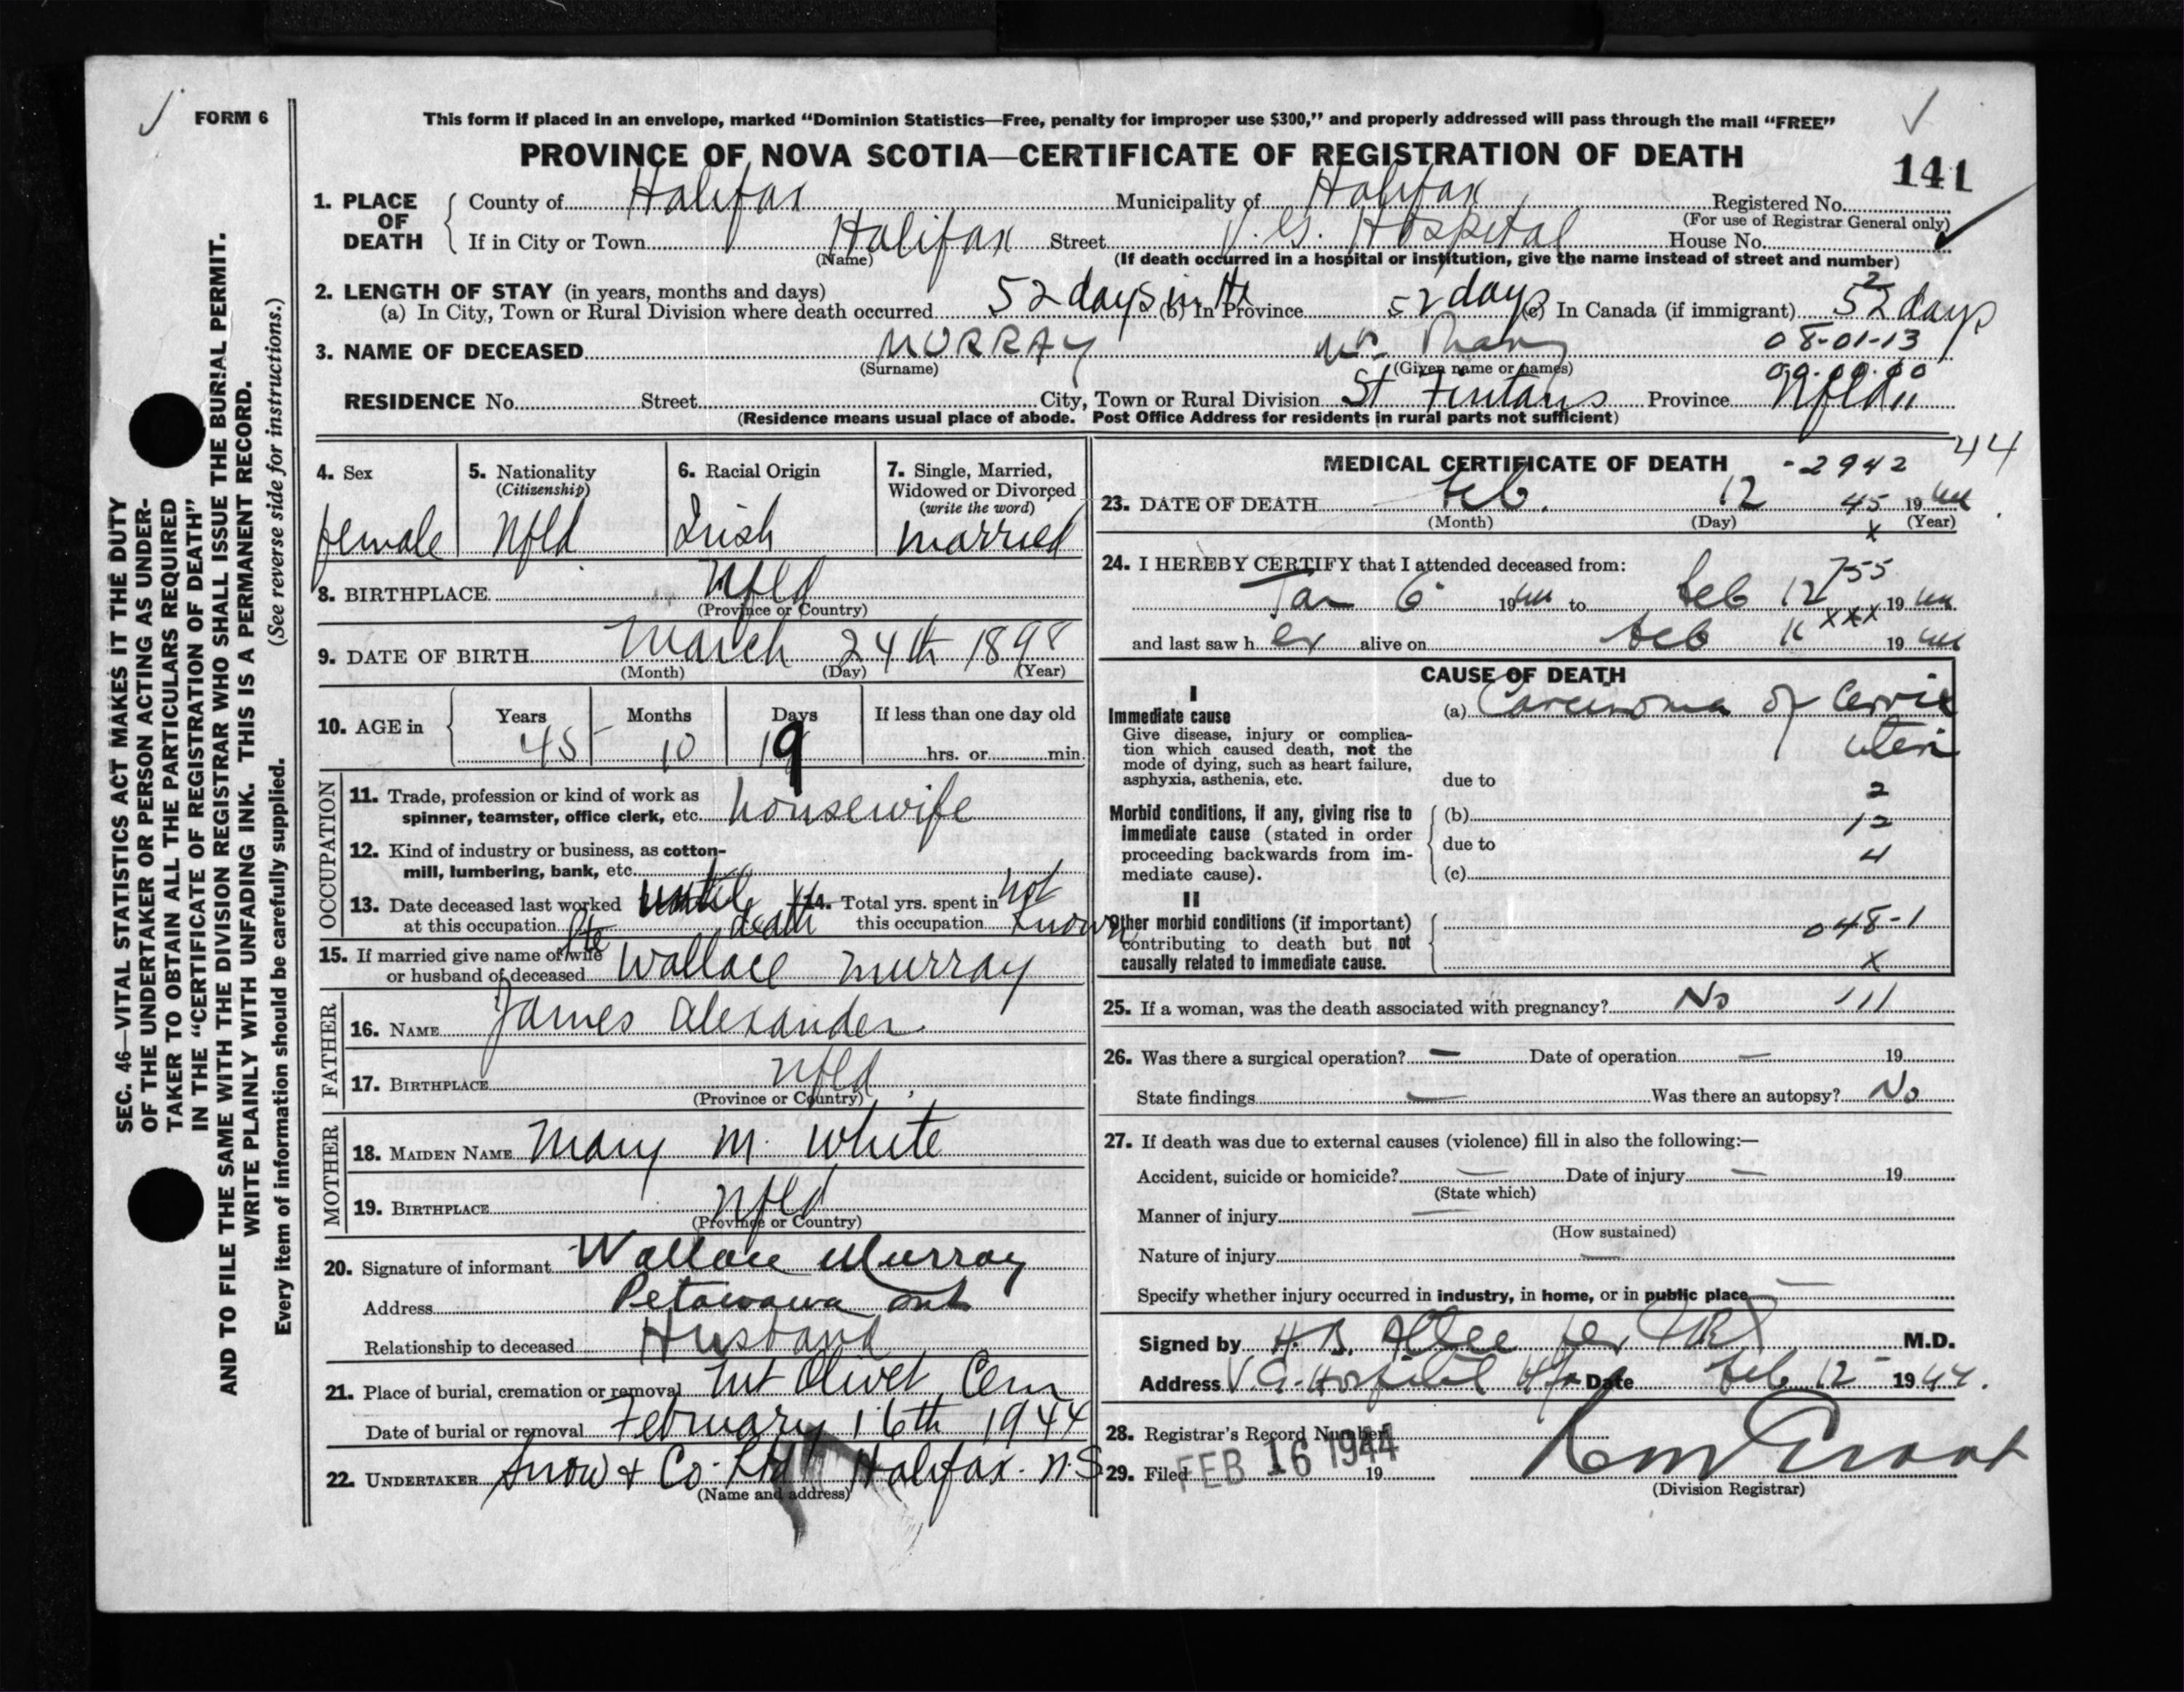 FORM 6
This form if placed in an envelope, marked “Dominion Statistics—Free, penalty for improper use $300,” and properly addressed will pass through the mail “FREE”
PROVINCE OF NOVA SCOTIA—CERTIFICATE OF REGISTRATION OF DEATH
141
1. PLACE OF DEATH
County of Halifax Municipality of Halifax Registered No.
(For use of Registrar General only)
If in City or Town Halifax Street V.G. Hospital House No.
(Name) (If death occurred in a hospital or institution, give the name instead of street and number)
2. LENGTH OF STAY (in years, months and days)
(a) In City, Town or Rural Division where death occurred 52 days (b) In Province 52 days (c) In Canada (if immigrant) 52 days
08-01-13
3. NAME OF DECEASED MURRAY Mary
(Surname) (Given name or names)
RESIDENCE No. Street City, Town or Rural Division St Fintans Province Nfld
(Residence means usual place of abode. Post Office Address for residents in rural parts not sufficient)
4. Sex female
5. Nationality (Citizenship) Nfld
6. Racial Origin Irish
7. Single, Married, Widowed or Divorced (write the word) married
8. BIRTHPLACE Nfld
(Province or Country)
9. DATE OF BIRTH March 24th 1898
(Month) (Day) (Year)
10. AGE in Years Months Days If less than one day old
45 10 19 hrs. or min.
OCCUPATION
11. Trade, profession or kind of work as
spinner, teamster, office clerk, etc. housewife
12. Kind of industry or business, as cotton-
mill, lumbering, bank, etc.
13. Date deceased last worked at this occupation until death
14. Total yrs. spent in this occupation not known
15. If married give name of wife
or husband of deceased Pte Wallace Murray
FATHER
16. NAME James Alexander
17. BIRTHPLACE Nfld
(Province or Country)
MOTHER
18. MAIDEN NAME Mary M. White
19. BIRTHPLACE Nfld
(Province or Country)
20. Signature of informant Wallace Murray
Address Petawawa Ont
Relationship to deceased Husband
21. Place of burial, cremation or removal Mt Olivet Cem
Date of burial or removal February 16th 1944
22. UNDERTAKER Snow & Co. Ltd Halifax. N.S
(Name and address)
MEDICAL CERTIFICATE OF DEATH -2942 44
23. DATE OF DEATH Feb. 12 45 19 44
(Month) (Day) (Year)
x
24. I HEREBY CERTIFY that I attended deceased from:
755
Jan 6 1944 to Feb 12 19 44
xxx
and last saw h er alive on Feb 19 44
CAUSE OF DEATH
I
Immediate cause
Give disease, injury or complica-
tion which caused death, not the
mode of dying, such as heart failure,
asphyxia, asthenia, etc.
(a) Carcinoma of Cervix
uteri
due to
2
Morbid conditions, if any, giving rise to
immediate cause (stated in order
proceeding backwards from im-
mediate cause).
(b)
12
due to
4
(c)
II
Other morbid conditions (if important)
contributing to death but not
causally related to immediate cause.
048-1
x
25. If a woman, was the death associated with pregnancy? No 111
26. Was there a surgical operation? — Date of operation — 19
State findings — Was there an autopsy? No
27. If death was due to external causes (violence) fill in also the following:—
Accident, suicide or homicide? — Date of injury — 19
(State which)
Manner of injury —
(How sustained)
Nature of injury —
Specify whether injury occurred in industry, in home, or in public place —
Signed by H. B. Atlee per M.D.
Address V.G. Hospital Hfx Date Feb 12 1944.
28. Registrar's Record Number
29. Filed FEB 16 1944 19
(Division Registrar)
SEC. 46—VITAL STATISTICS ACT MAKES IT THE DUTY
OF THE UNDERTAKER OR PERSON ACTING AS UNDER-
TAKER TO OBTAIN ALL THE PARTICULARS REQUIRED
IN THE “CERTIFICATE OF REGISTRATION OF DEATH”
AND TO FILE THE SAME WITH THE DIVISION REGISTRAR WHO SHALL ISSUE THE BURIAL PERMIT.
WRITE PLAINLY WITH UNFADING INK. THIS IS A PERMANENT RECORD.
Every item of information should be carefully supplied. (See reverse side for instructions.)